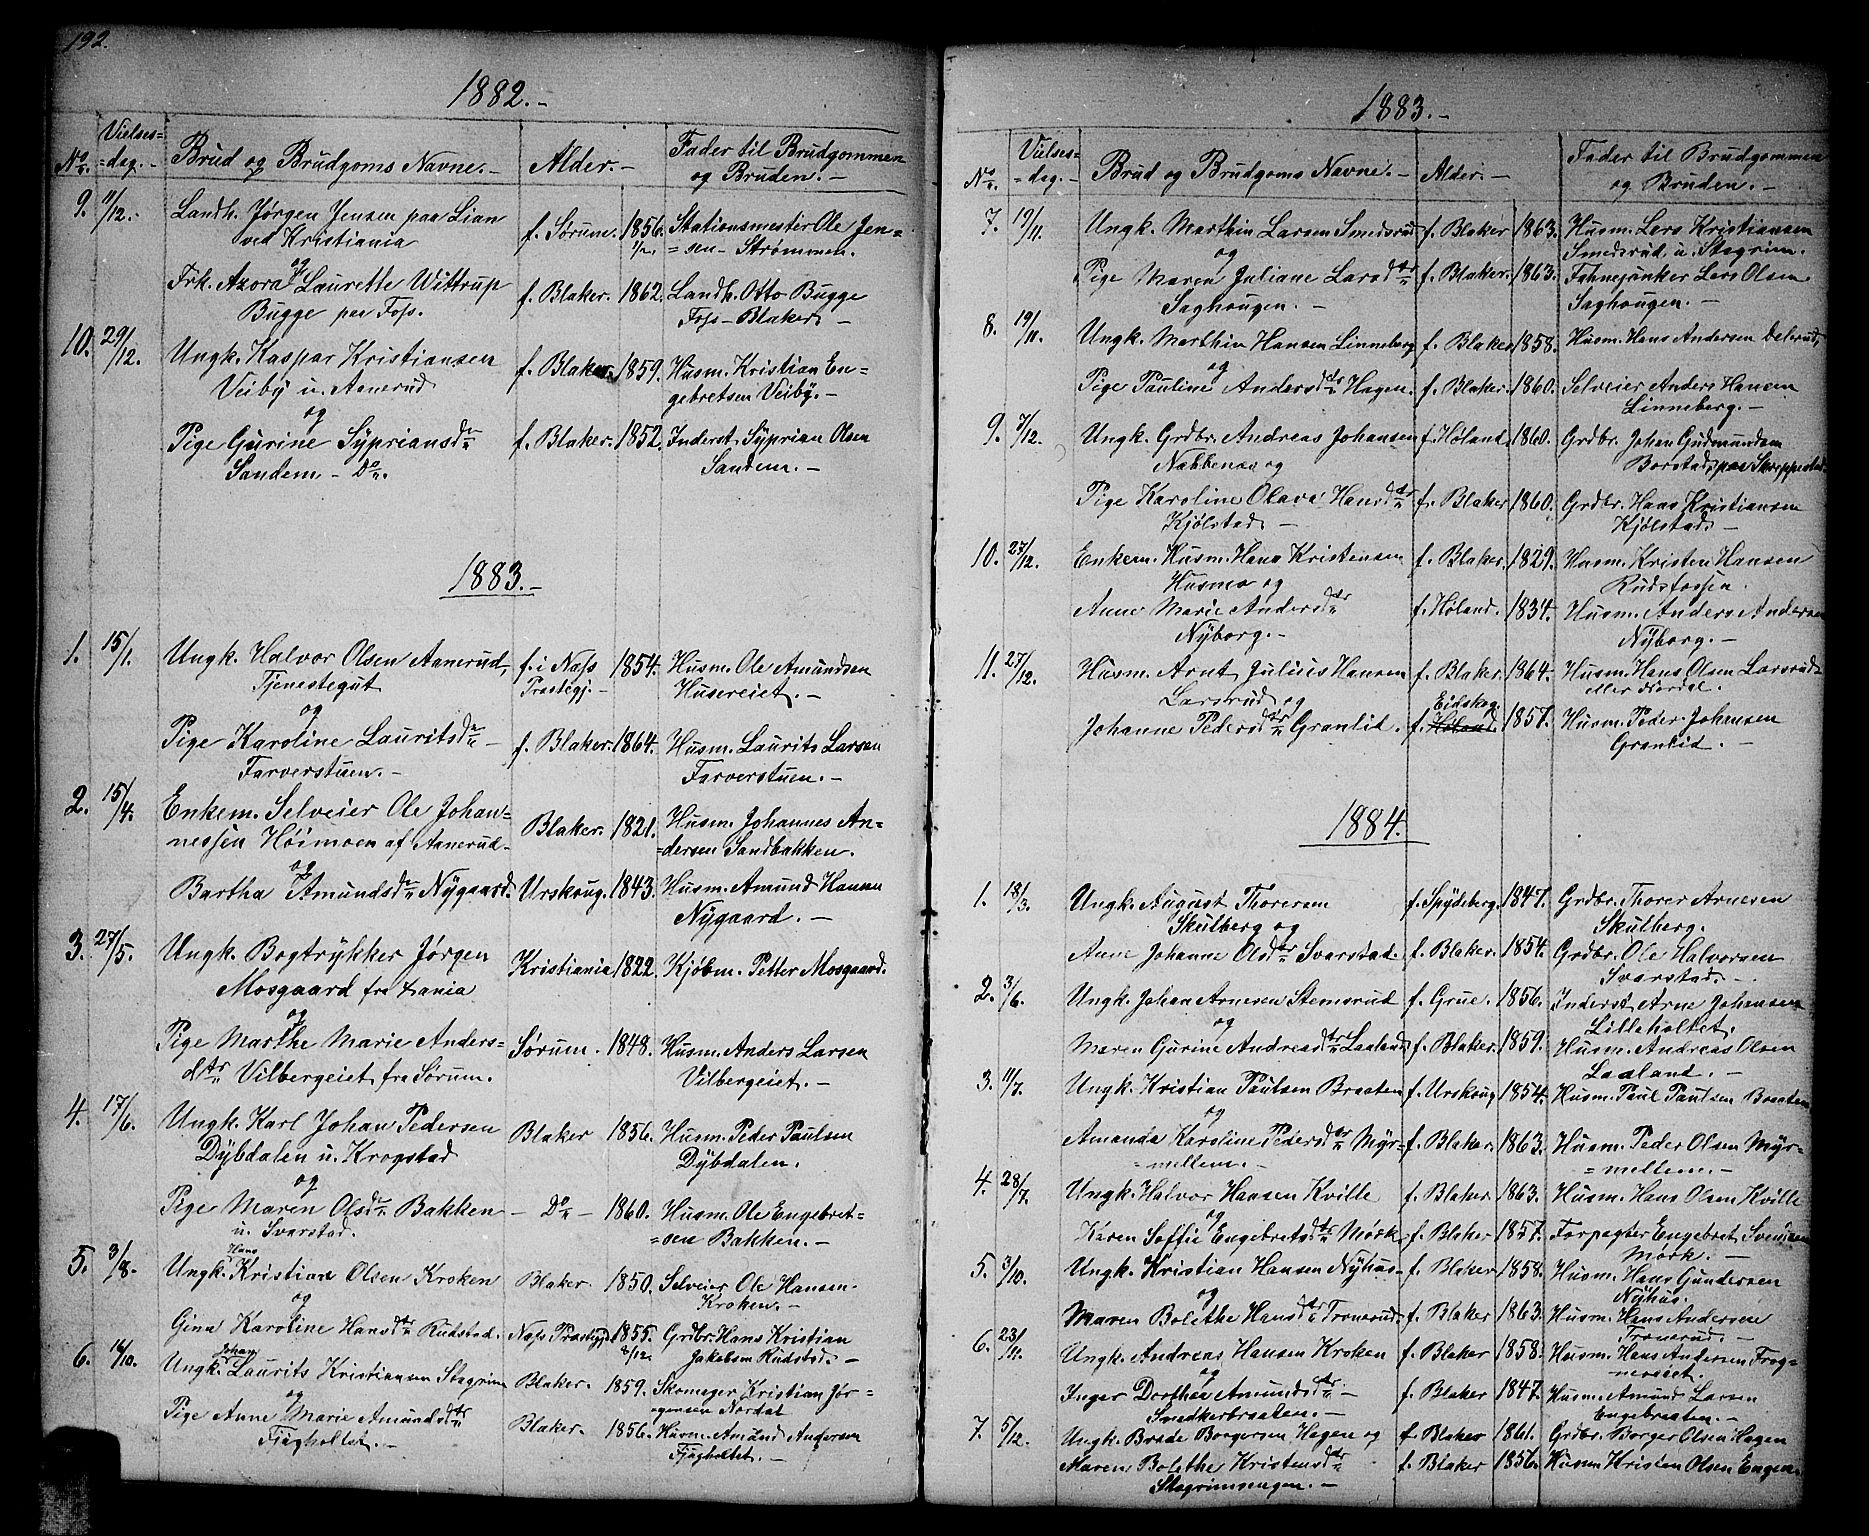 192.
1882.-
No. Vielses=dag.- Brud og Brudgoms Navne.- Alder.- Fader til Brudgommen og Bruden.-
9. 11/12. Landh. Jørgen Jensen paa Lian f. Sørum. 1856. Stationsmester Ole Jen=
ved Kristiania =sen Strømmen.
og
Frk. Azora Laurette Wittrup f. Blaker. 1862. Landh. Otto Bugge
Bugge paa Foss. Foss-Blaker. -
10. 29/12. Ungk. Kaspar Kristiansen f. Blaker. 1859. Husm. Kristian En=
Veiby u. Aanerud gebretsen Veiby.-
og
Pige Gurine Syprians dr f. Blaker. 1852. Inderst Syprian Olsen
Sandem. - Do. Sandem.-
1883.-
1. 15/1. Ungk. Halvor Olsen Aanerud, f. i Næss 1854. Husm. Ole Amundsen
Tjenestegut Præstegj.- Husereiet.-
og
Pige Karoline Laurits dr - f. Blaker. 1864. Husm. Laurits Larsen
Farverstuen.- Farverstuen.-
2. 15/4. Enkem. Selveier Ole Johan= Blaker. 1821. Husm. Johannes An=
nessen Høimoen af Aanerud- =dersen Sandbakken.
og
Bartha Amunds dr Nygaard. Urskoug. 1843. Husm. Amund Hansen
Nygaard. -
3. 27/5. Ungk. Bogtrykker Jørgen Kristiania 1822. Kjøbm. Petter Mosgaard.
Mosgaard fra Xania
og
Pige Marthe Marie Anders- Sørum. 1848. Husm. Anders Larsen
dtr Vilbergeiet fra Sørum. Vilbergeiet.-
4. 17/6. Ungk. Karl Johan Pedersen Blaker 1856. Husm. Peder Paulsen
Dybdalen u. Krogstad Dybdalen.
og
Pige Maren Ols dr Bakken - Do - 1860. Husm. Ole Engebret=
u. Svarstad. =sen Bakken.-
5. 3/8. Ungk. Hans Kristian Olsen Kroken Blaker. 1850. Selveier Ole Hansen
og Kroken.-
Gina Karoline Hans dr Rudstad. Næss Præstegj. 1855. Grdbr. Hans Kristian
8/12. Jakobsen Rudstad.-
6. 14/10. Ungk. Johan Laurits Kristiansen Stagrim Blaker. 1859. Skomager Kristian Jør=
og =gensen Nordal
Pige Anne Marie Amunds dtr Blaker. 1856. Husm. Amund Andersen
Fjøgholtet.- Fjøgholtet.-
1883.-
No. Vielses=dag.- Brud og Brudgoms Navne.- Alder.- Fader til Brudgommen og Bruden.-
7. 19/11. Ungk. Marthin Larsen Smedsrud f. Blaker 1863. Husm. Lars Kristiansen
og Smedsrud u. Stagrim.
Pige Maren Juliane Lars dtr f. Blaker. 1863. Fahnejunker Lars Olsen
Saghougen.- Saghougen.-
8. 19/11. Ungk. Marthin Hansen Linneberg f. Blaker 1858. Husm. Hans Andersen Delerud,
og
Pige Pauline Anders dtr Hagen. f. Blaker. 1860. Selveier Anders Hansen
Linneberg.-
9. 7/12. Ungk. Grdbr. Andreas Johansen f. Høland. 1860. Grdbr. Johan Gudmundsen
Nabbenes og Borstad, paa Skreppestad.
Pige Karoline Olava Hans dtr f. Blaker 1860. Grdbr. Hans Kristiansen
Kjølstad.- Kjølstad.-
10. 27/12. Enkem. Husm. Hans Kristensen f. Blaker. 1829. Husm. Kristen Hansen
Husmo og Rudsfossen.
Anne Marie Anders dtr f. Høland. 1834. Husm. Anders Andersen
Nyborg.- Nyborg.-
11. 27/12. Husm. Arnt Julius Hansen f. Blaker. 1864. Husm. Hans Olsen Larsrud
Larsrud og eller Nordal.
Johanne Peders dtr Granlid. f. Høland. Eidskog. 1857. Husm. Peder Johansen
Granlid.-
1884.
1. 18/3. Ungk. August Thorersen f. Spydeberg. 1847. Grdbr. Thorer Arnesen
Skulberg og Skulberg.
Anne Johanne Ols dtr Svarstad. f. Blaker. 1854. Grdbr. Ole Halvorsen
Svarstad.-
2. 3/6. Ungk. Johan Arnesen Stemsrud f. Grue. 1856. Inderst Arne Johansen
og Lilleholtet.
Maren Gurine Andreas dtr Laaland f. Blaker. 1859. Husm. Andreas Olsen
Laaland.-
3. 11/7. Ungk. Kristian Paulsen Braaten f. Urskoug 1854. Husm. Paul Paulsen Braaten
og
Amanda Karoline Peders dtr Myr= f. Blaker. 1863. Husm. Peder Olsen Myr=
=mellem.- =mellem.-
4. 28/7. Ungk. Halvor Hansen Kville f. Blaker 1863. Husm. Hans Olsen Kville
og
Karen Soffie Engebrets dtr Mørk f. Blaker 1857. Forpagter Engebret Svendsen
Mørk.-
5. 3/10. Ungk. Kristian Hansen Nyhus- f. Blaker 1858. Husm. Hans Gundersen
og Nyhus.
Maren Bolethe Hans dtr Tronerud. f. Blaker 1863. Husm. Hans Andersen
Tronerud.-
6. 23/11. Ungk. Andreas Hansen Kroken f. Blaker 1858. Husm. Hans Andersen Frog=
og nereiet.
Inger Dorthea Amunds dtr - f. Blaker 1847. Husm. Amund Larsen
Snedkerbraaten.- Engebraaten.-
7. 5/12. Ungk. Brede Borgersen Hagen og f. Blaker 1861. Grdbr. Borger Olsen Hagen
Maren Bolethe Kristens dtr f. Blaker 1856. Husm. Kristen Olsen Engen.
Stagrimsengen.-